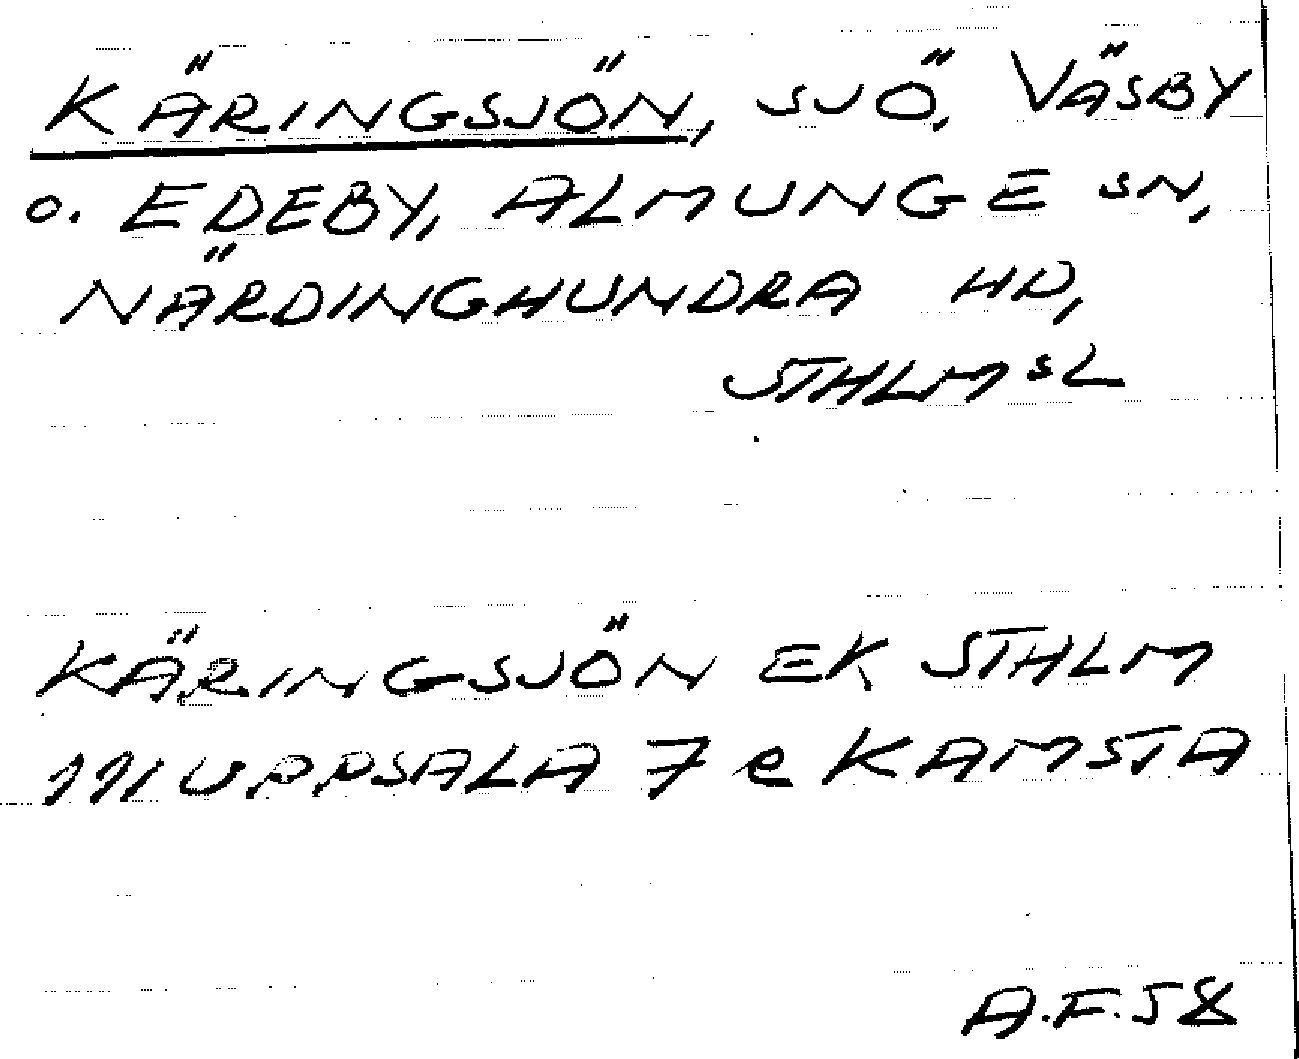 KÄRINGSJÖN, SJÖ, VÄSBY
o. EDEBY, ALMUNGE SN,
NÄRDINGHUNDRA HD,
STHLMSL
KÄRINGSJÖN EK STHLM
111 UPPSALA 7 e KAMSTA
A.F. 58